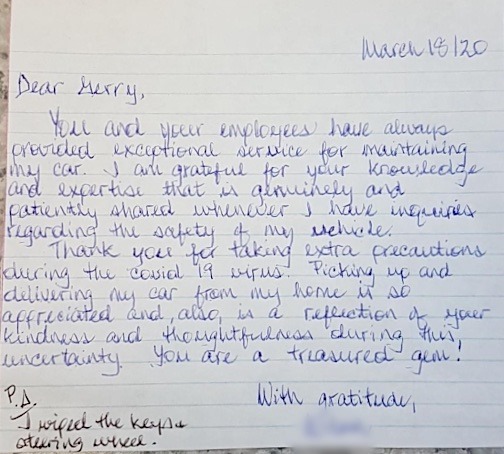 March 18/20
Dear Gerry,
You and your employees have always
provided exceptional service for maintaining
my car. I am grateful for your knowledge
and expertise that is genuinely and
patiently shared whenever I have inquiries
regarding the safety of my vehicle.
Thank you for taking extra precautions
during the covid 19 virus. Picking up and
delivering my car from my home is so
appreciated and, also, is a reflection of your
kindness and thoughtfulness during this,
uncertainty. You are a treasured gem!
With gratitude,
P.S.
I wiped the keys &
steering wheel.